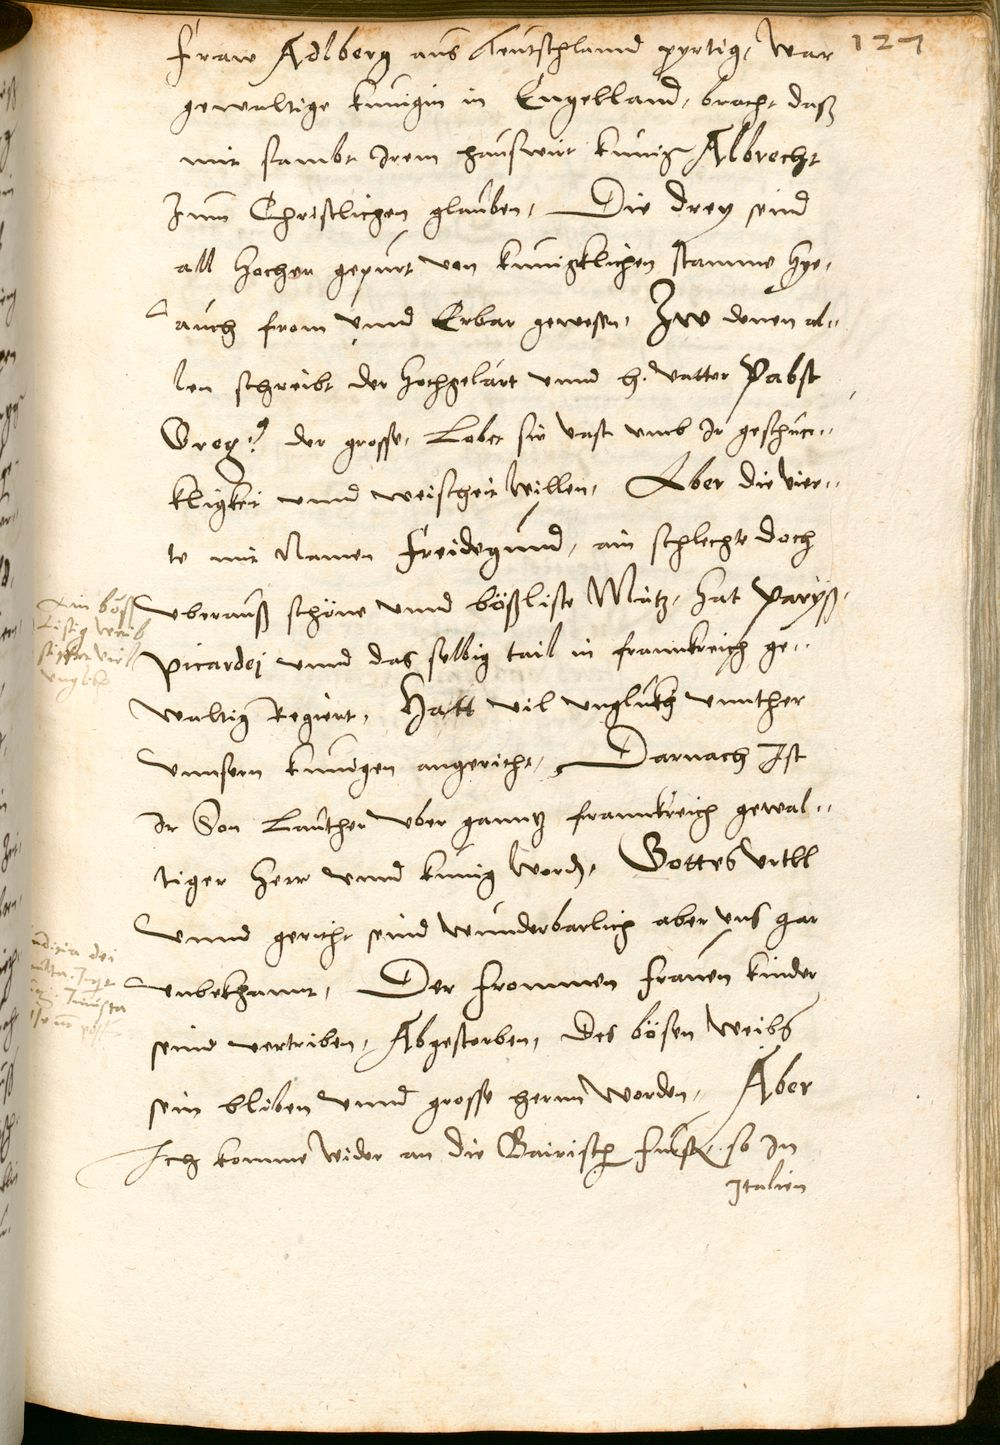 127
Fraw Adlberg aus Teutschlannd pürtig, war
gewaltige künigin in Engelland, bracht daß
mit sambt Irem hauswirt künig Albrecht
Zumm Christlichen glauben, Die drey seind
all Hocher gepurt von künigklichen stamme hye,
auch from vnnd Erbar gewesen, Zw denen al-
len schreibt der Hochgelärt vnnd h. vatter Pabst
Greg. der grosse, Lobet sie vast vmb Ir geschick-
kligkeit vnnd weisheit willen, Aber die vier-
te mit Namen Freidegund, ain schlechte doch
vberauß schöne vnnd bößliste Mätz, Hat Paryß,
picardej vnnd das selbig tail in frannkreich ge-
waltig Regiert, Hatt vil vnglückh vnnther
vnnsern künigen angericht, Darnach Ist
Ir Son Lauther vber ganntz frannkreich gewal-
tiger Herr vnnd künig word, Gottes vrtll
vnnd gericht seind wunderbarlich aber vns gar
vnbekhannt, Der frommen frawen kinder
seind vertriben, Abgestorben, Des bösen weibs
sein bliben vnnd grosse herrn worden, Aber
Ich komme wider an die Bairisch Fürst, so In
Italien
Ain böß
Listig weib
stifftet viel
vnglkh
dei